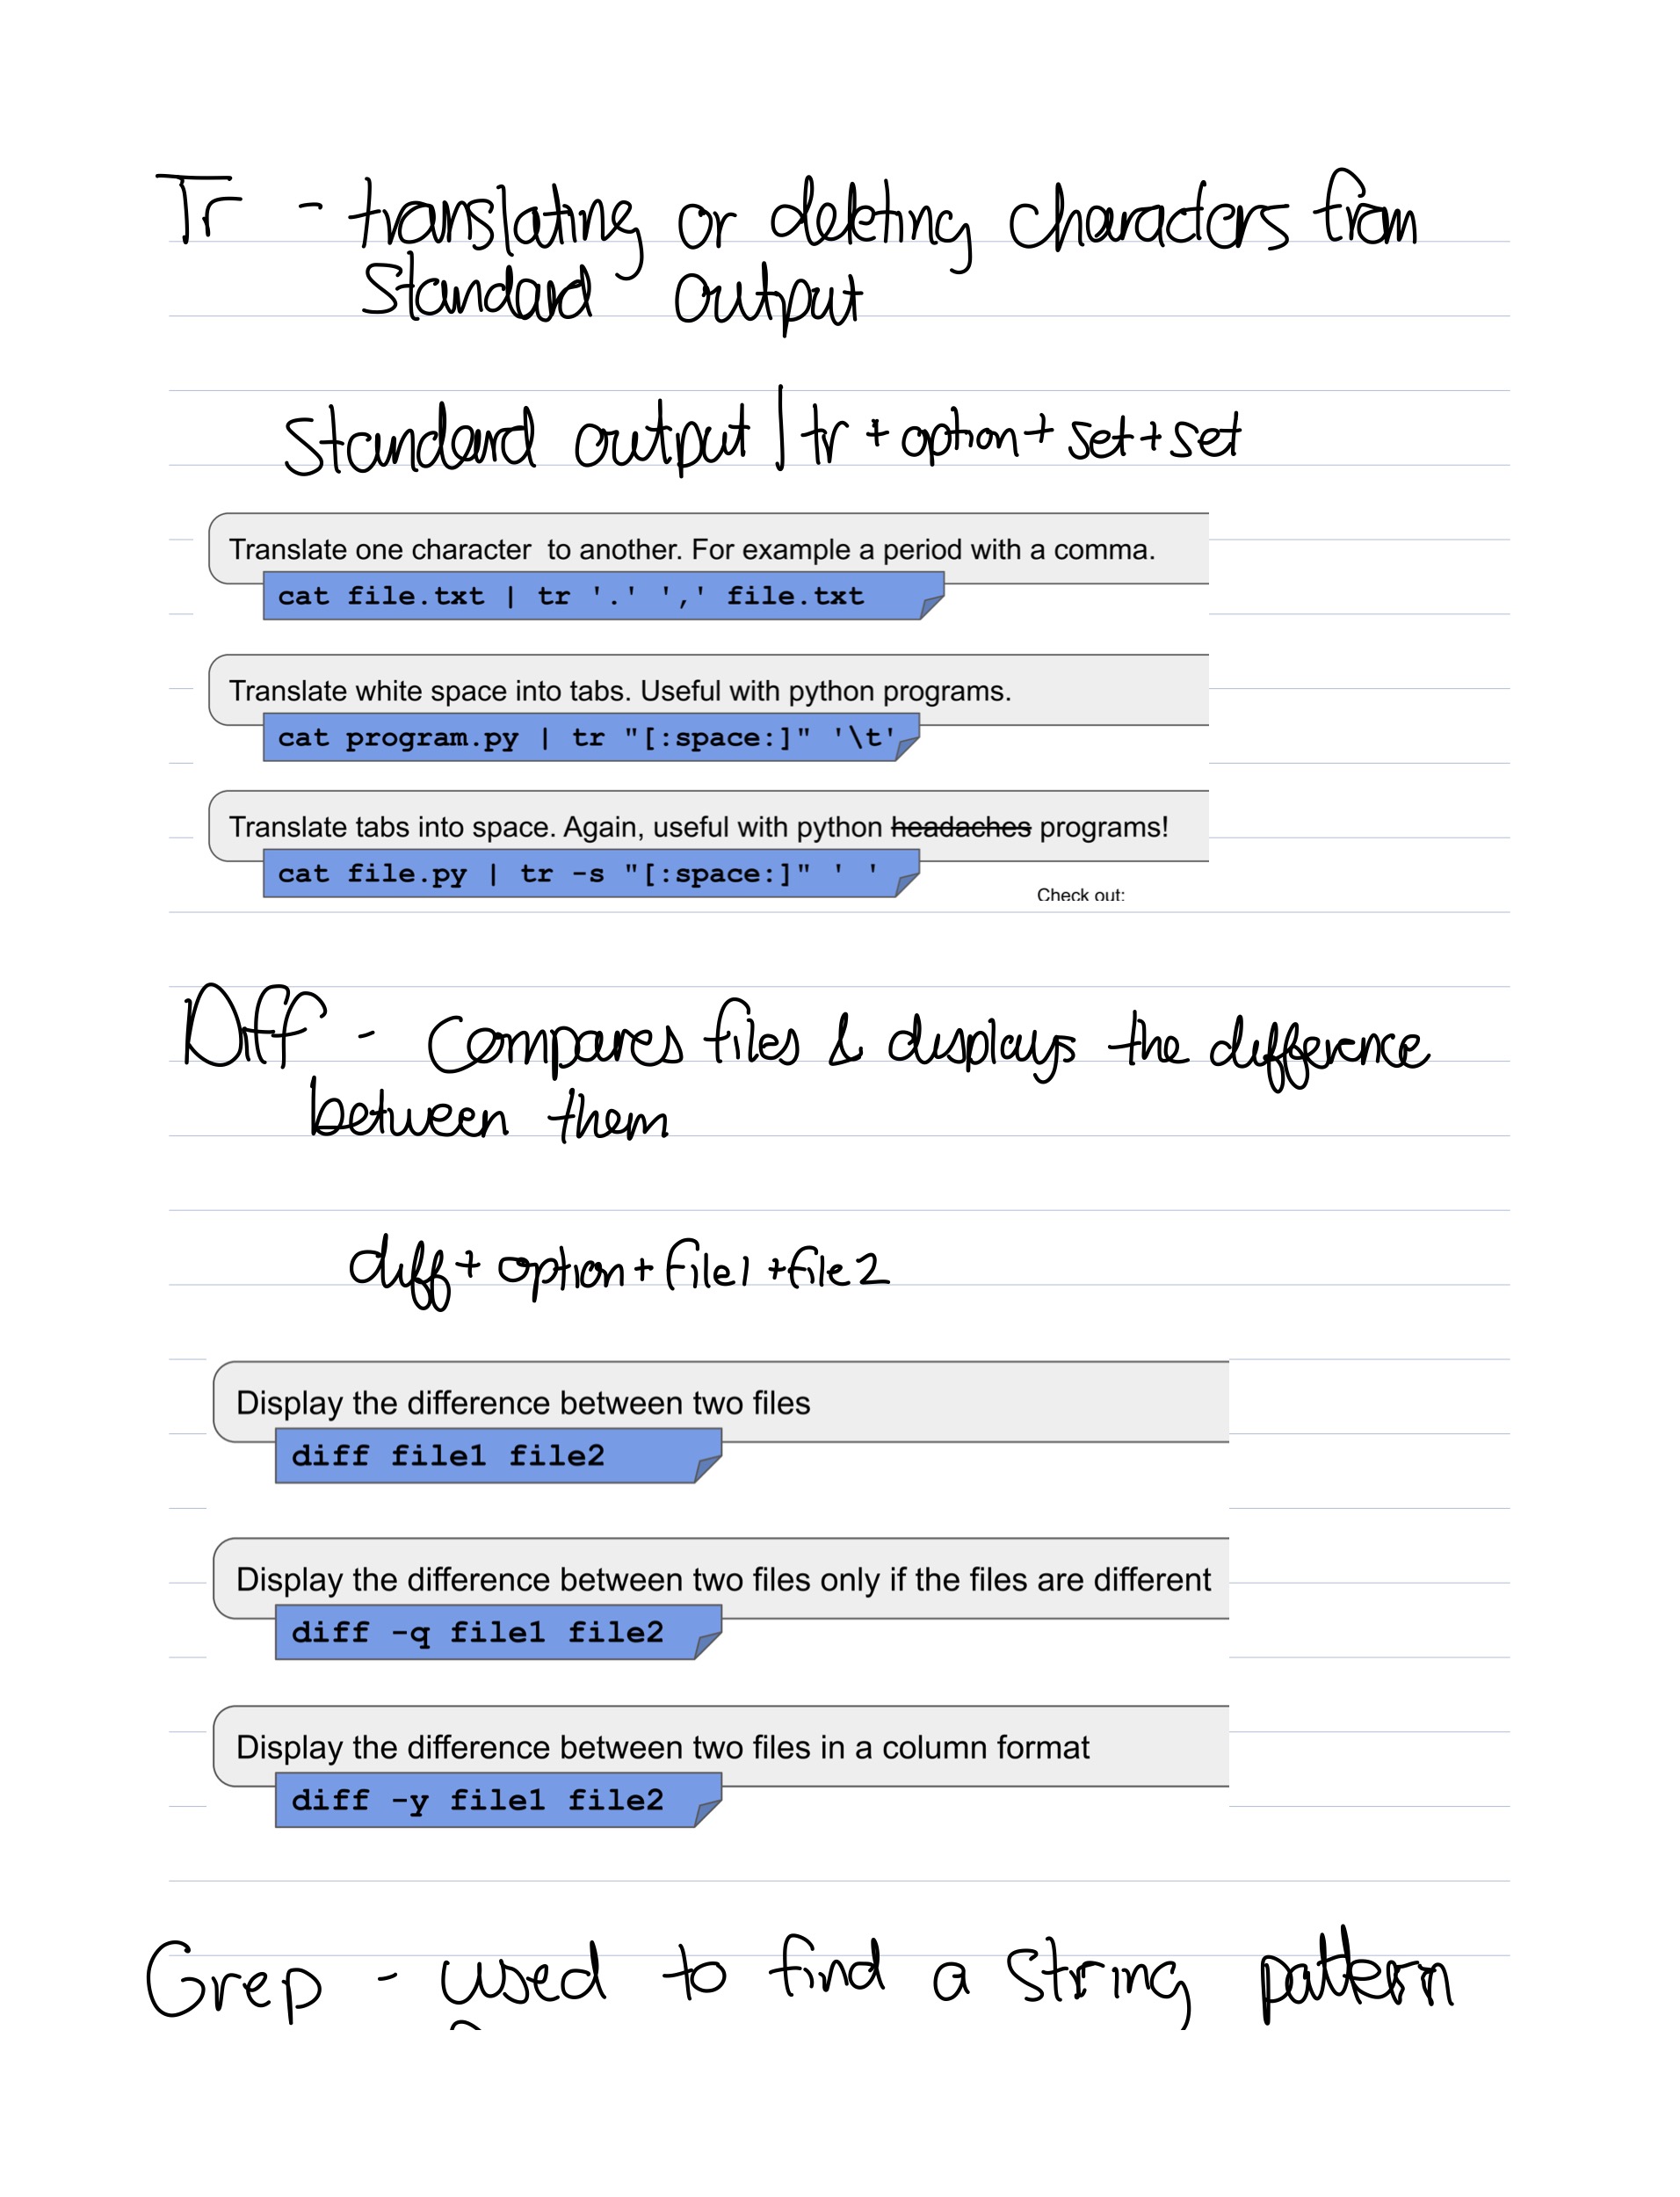 Tr - translating or deleting characters from
standard output
standard output | tr + option + set + set
Translate one character to another. For example a period with a comma.
cat file.txt | tr '.' ',' file.txt
Translate white space into tabs. Useful with python programs.
cat program.py | tr "[:space:]" '\t'
Translate tabs into space. Again, useful with python headaches programs!
cat file.py | tr -s "[:space:]" ' '
Check out:
Diff - compares files & displays the difference
between them
diff + option + file1 + file2
Display the difference between two files
diff file1 file2
Display the difference between two files only if the files are different
diff -q file1 file2
Display the difference between two files in a column format
diff -y file1 file2
Grep - used to find a string pattern